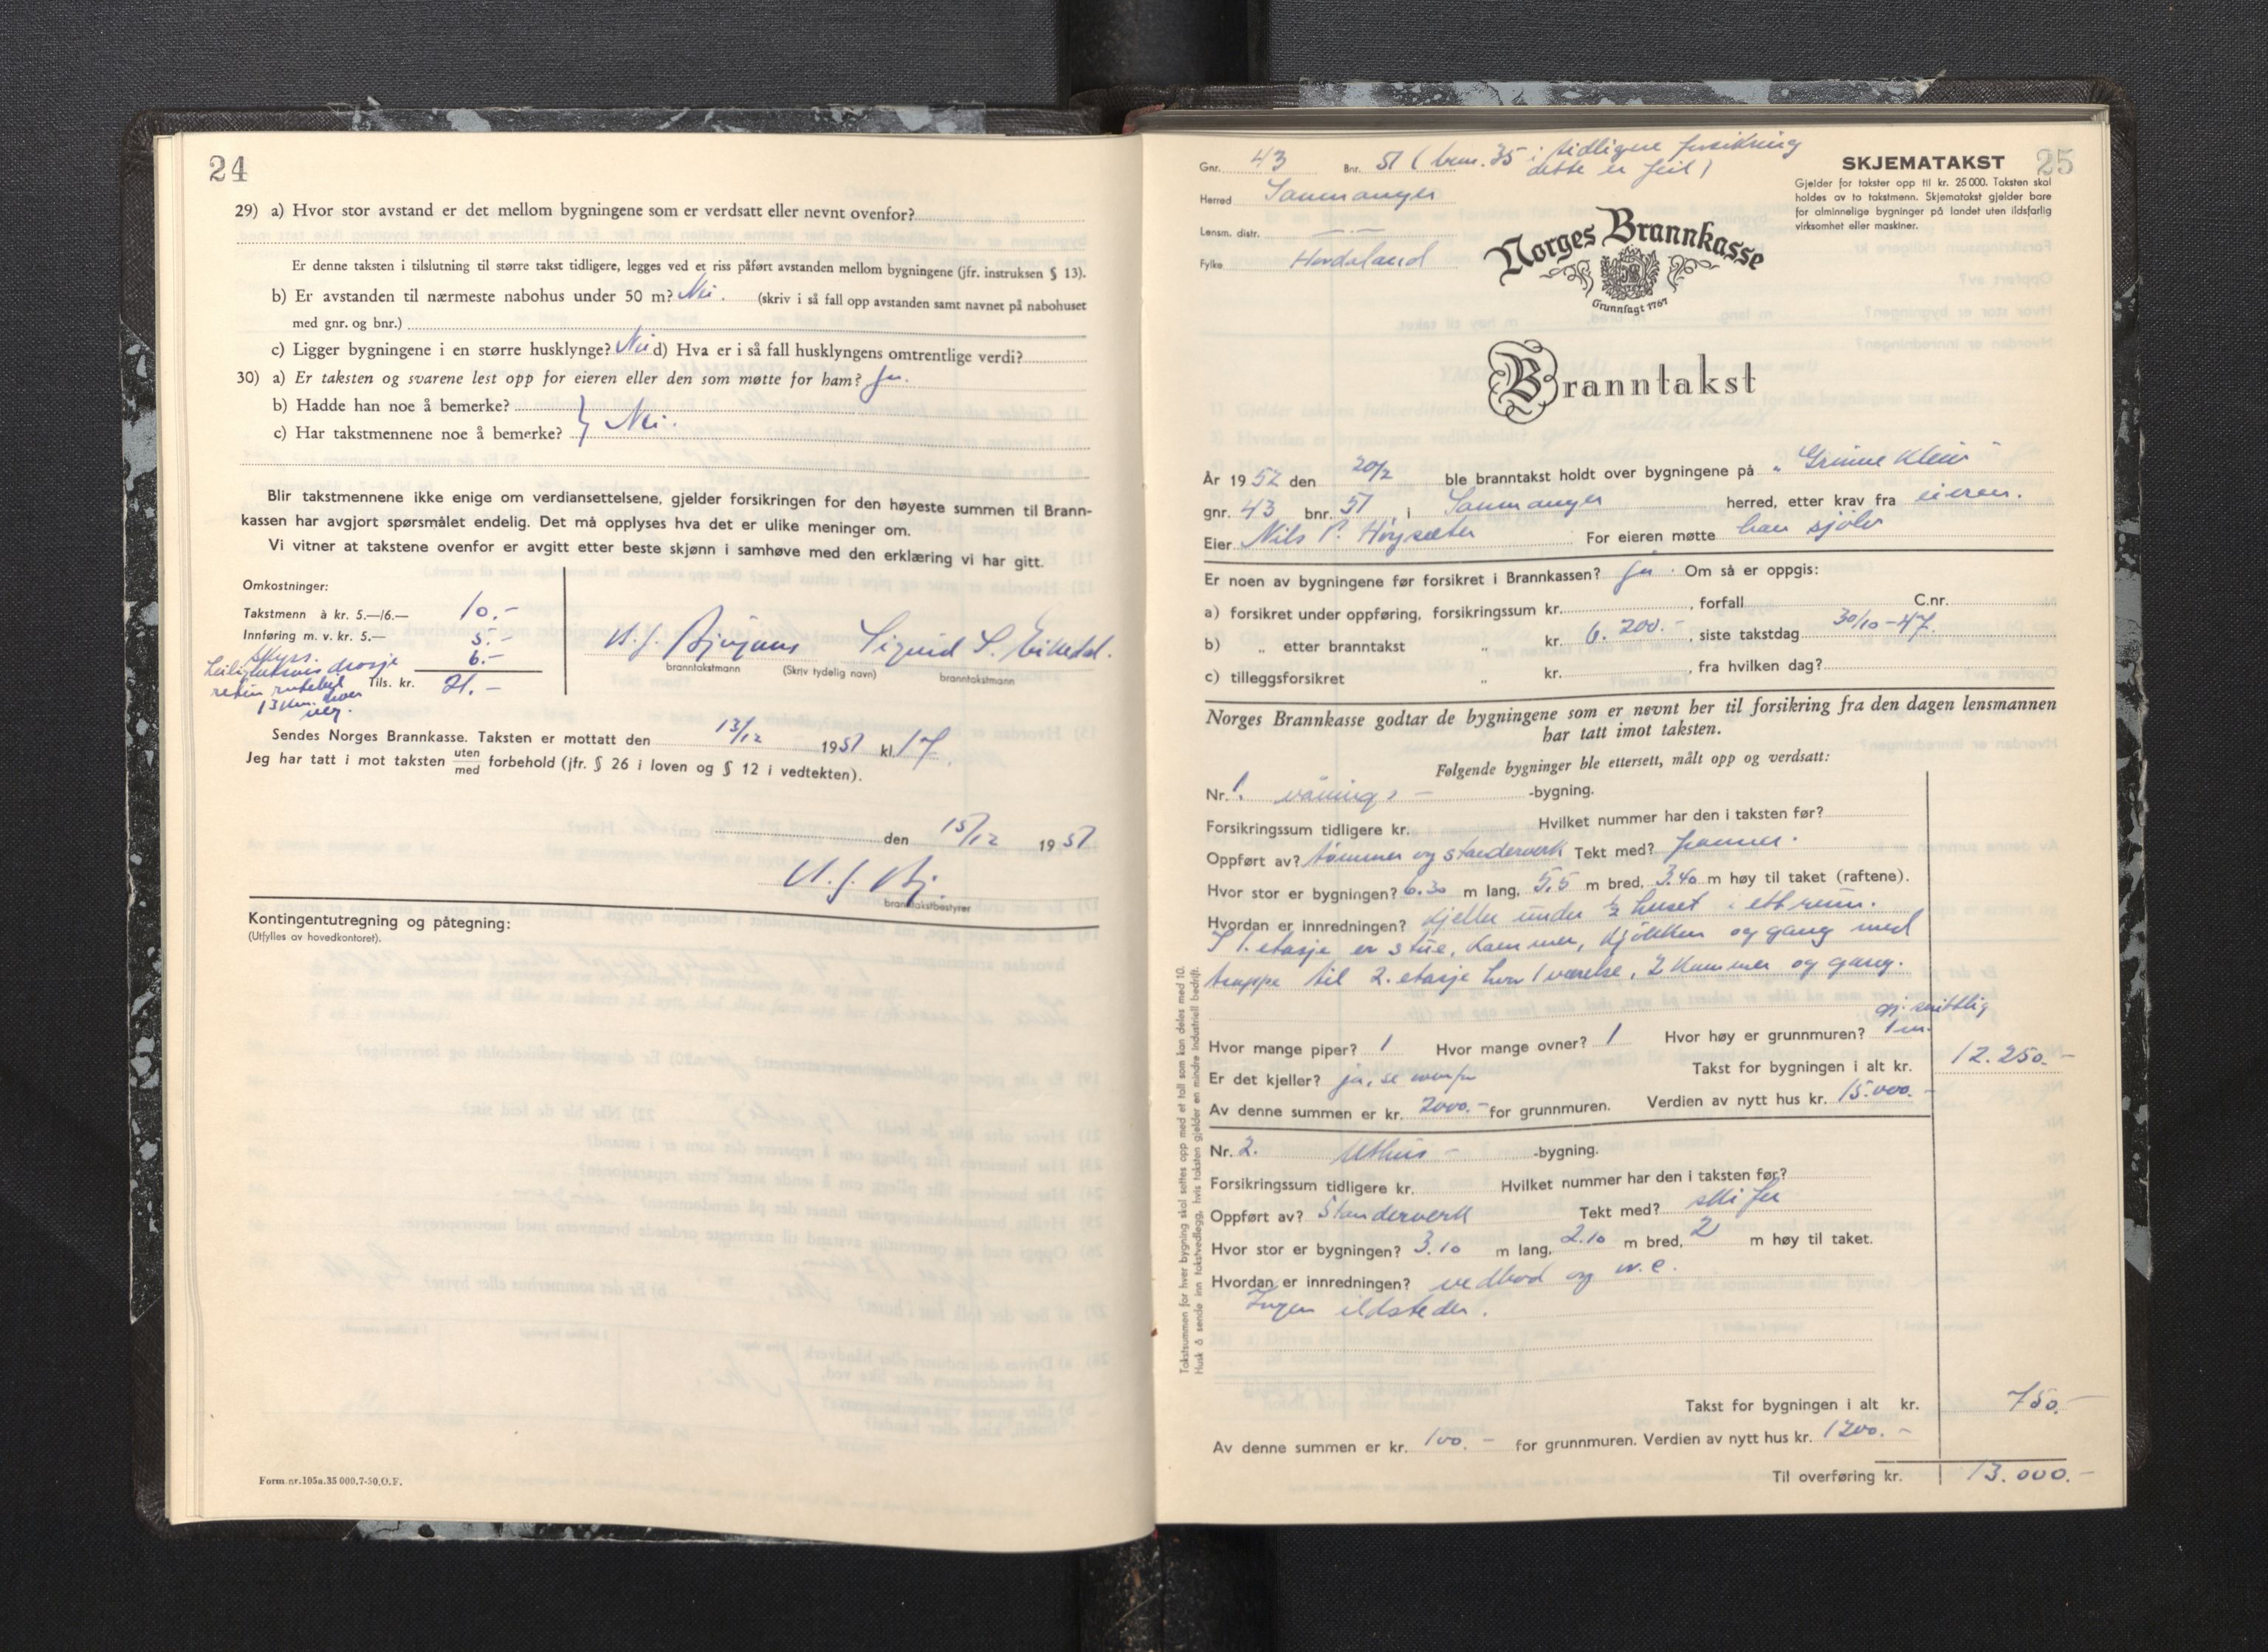 24
29) a) Hvor stor avstand er det mellom bygningene som er verdsatt eller nevnt ovenfor?
Er denne taksten i tilslutning til større takst tidligere, legges ved et riss påført avstanden mellom bygningene (jfr. instruksen § 13).
b) Er avstanden til nærmeste nabohus under 50 m? Nei. (skriv i så fall opp avstanden samt navnet på nabohuset
med gnr. og bnr.)
c) Ligger bygningene i en større husklynge? Nei d) Hva er i så fall husklyngens omtrentlige verdi?
30) a) Er taksten og svarene lest opp for eieren eller den som møtte for ham? Ja.
b) Hadde han noe å bemerke?
c) Har takstmennene noe å bemerke? } Nei.
Blir takstmennene ikke enige om verdiansettelsene, gjelder forsikringen for den høyeste summen til Brann-
kassen har avgjort spørsmålet endelig. Det må opplyses hva det er ulike meninger om.
Vi vitner at takstene ovenfor er avgitt etter beste skjønn i samhøve med den erklæring vi har gitt.
Omkostninger:
Takstmenn à kr. 5.—/6.— 10.-
Innføring m. v. kr. 5.— 5.-
Skyss. 6.-
drosje
rutebil Tils. kr. 21.-
13 km. hver
veg.
Sigurd S. Eikedal.
branntakstmann (Skriv tydelig navn) branntakstmann
Sendes Norges Brannkasse. Taksten er mottatt den 13/12 1951 kl. 17.
Jeg har tatt i mot taksten uten/med forbehold (jfr. § 26 i loven og § 12 i vedtekten).
den 15/12 1951
branntakstbestyrer
Kontingentutregning og påtegning:
(Utfylles av hovedkontoret).
Form nr. 105a. 35 000. 7-50. O. F.
25
Gnr. 43 Bnr. 51 (bnr. 35 i tidligere forsikring
dette er feil)
Herred Samnanger
Lensm. distr. — " —
Fylke Hordaland
SKJEMATAKST
Gjelder for takster opp til kr. 25 000. Taksten skal
holdes av to takstmenn. Skjematakst gjelder bare
for alminnelige bygninger på landet uten ildsfarlig
virksomhet eller maskiner.
Norges Brannkasse
Grunnlagt 1767
Branntakst
År 1952 den 20/2 ble branntakst holdt over bygningene på "Grinne Kleiv"
gnr. 43 bnr. 51 i Samnanger herred, etter krav fra eieren.
Eier Nils P. Høysæter For eieren møtte han sjølv
Er noen av bygningene før forsikret i Brannkassen? Ja. Om så er oppgis:
a) forsikret under oppføring, forsikringssum kr. , forfall C.nr.
b) „ etter branntakst „ kr. 6.200.- , siste takstdag 30/10-47.
c) tilleggsforsikret „ kr. , fra hvilken dag?
Norges Brannkasse godtar de bygningene som er nevnt her til forsikring fra den dagen lensmannen
har tatt imot taksten.
Følgende bygninger ble ettersett, målt opp og verdsatt:
Nr. 1. vånings- -bygning.
Forsikringssum tidligere kr. Hvilket nummer har den i taksten før?
Oppført av? tømmer og standerverk Tekt med? panner.
Hvor stor er bygningen? 6.30 m lang, 5,5 m bred, 3.40 m høy til taket (raftene).
Hvordan er innredningen? Kjeller under ½ huset i ett rum.
I 1. etasje er stue, kammer, kjøkken og gang med
trappe til 2. etasje hvor 1 værelse, 2 kammer og gang.
gj. snittlig
Hvor mange piper? 1 Hvor mange ovner? 1 Hvor høy er grunnmuren? 1 m.
Er det kjeller? ja, se ovenfor Takst for bygningen i alt kr. 12.250.-
Av denne summen er kr. 2000.- for grunnmuren. Verdien av nytt hus kr. 15.000.-
Nr. 2. Uthus- -bygning.
Forsikringssum tidligere kr. Hvilket nummer har den i taksten før?
Oppført av? Standerverk Tekt med? skifer
Hvor stor er bygningen? 3.10 m lang, 2.10 m bred, 2 m høy til taket.
Hvordan er innredningen? vedbod og w.c.
Ingen ildsteder.
Takst for bygningen i alt kr. 750.-
Av denne summen er kr. 100.- for grunnmuren. Verdien av nytt hus kr. 1200.-
Til overføring kr. 13.000.-
Takstsummen for hver bygning skal settes opp med et tall som kan deles med 10.
Husk å sende inn takstvedlegg, hvis taksten gjelder en mindre industriell bedrift.